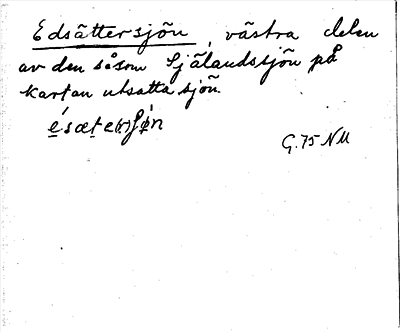 Edsättersjön, västra delen
av den såsom Själandssjön på
kartan utsatta sjön.
é̱sæṯe(r)ʃǿ̱n
G. 75 NU